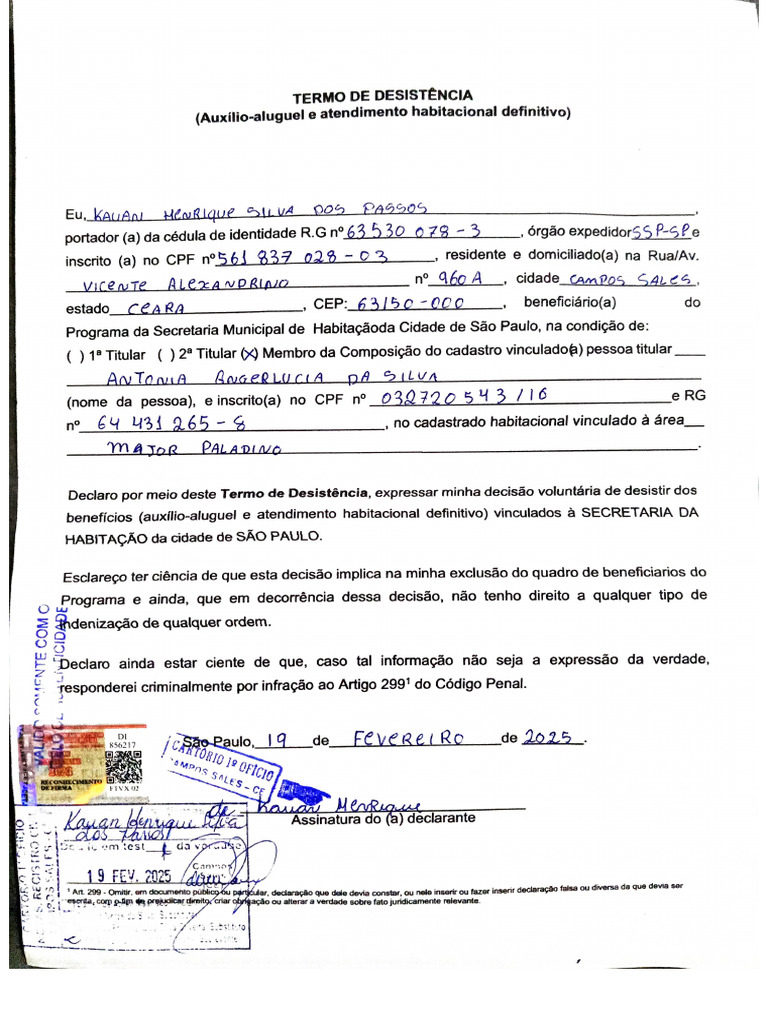 TERMO DE DESISTÊNCIA
(Auxílio-aluguel e atendimento habitacional definitivo)
Eu, KAUAN HENRIQUE SILVA DOS PASSOS
portador (a) da cédula de identidade R.G nº 63 530 078-3, órgão expedidor SSP-SP e
inscrito (a) no CPF nº 561 837 028-03, residente e domiciliado(a) na Rua/Av.
VICENTE ALEXANDRINO nº 960 A, cidade CAMPOS SALES,
estado CEARA, CEP: 63150-000, beneficiário(a) do
Programa da Secretaria Municipal de Habitaçãoda Cidade de São Paulo, na condição de:
( ) 1ª Titular ( ) 2ª Titular (X) Membro da Composição do cadastro vinculado(a) pessoa titular
ANTONIA ANGERLUCIA DA SILVA
(nome da pessoa), e inscrito(a) no CPF nº 032720543/16 e RG
nº 64 431 265-8, no cadastrado habitacional vinculado à área
MAJOR PALADINO.
Declaro por meio deste Termo de Desistência, expressar minha decisão voluntária de desistir dos
benefícios (auxílio-aluguel e atendimento habitacional definitivo) vinculados à SECRETARIA DA
HABITAÇÃO da cidade de SÃO PAULO.
Esclareço ter ciência de que esta decisão implica na minha exclusão do quadro de beneficiarios do
Programa e ainda, que em decorrência dessa decisão, não tenho direito a qualquer tipo de
indenização de qualquer ordem.
Declaro ainda estar ciente de que, caso tal informação não seja a expressão da verdade,
responderei criminalmente por infração ao Artigo 299¹ do Código Penal.
VALIDO SOMENTE COM O
SELO DE AUTENTICIDADE
São Paulo, 19 de FEVEREIRO de 2025.
DI
856217
RECONHECIMENTO
DE FIRMA
F1VX 02
CARTÓRIO 1º OFÍCIO
CAMPOS SALES - CE
Kauan Henrique
Assinatura do (a) declarante
Kauan Henrique Silva
dos Passos
Dou fé em test da verdade
Campos
19 FEV. 2025
¹ Art. 299 - Omitir, em documento público ou particular, declaração que dele devia constar, ou nele inserir ou fazer inserir declaração falsa ou diversa da que devia ser
escrita, com o fim de prejudicar direito, criar obrigação ou alterar a verdade sobre fato juridicamente relevante.
Substituto